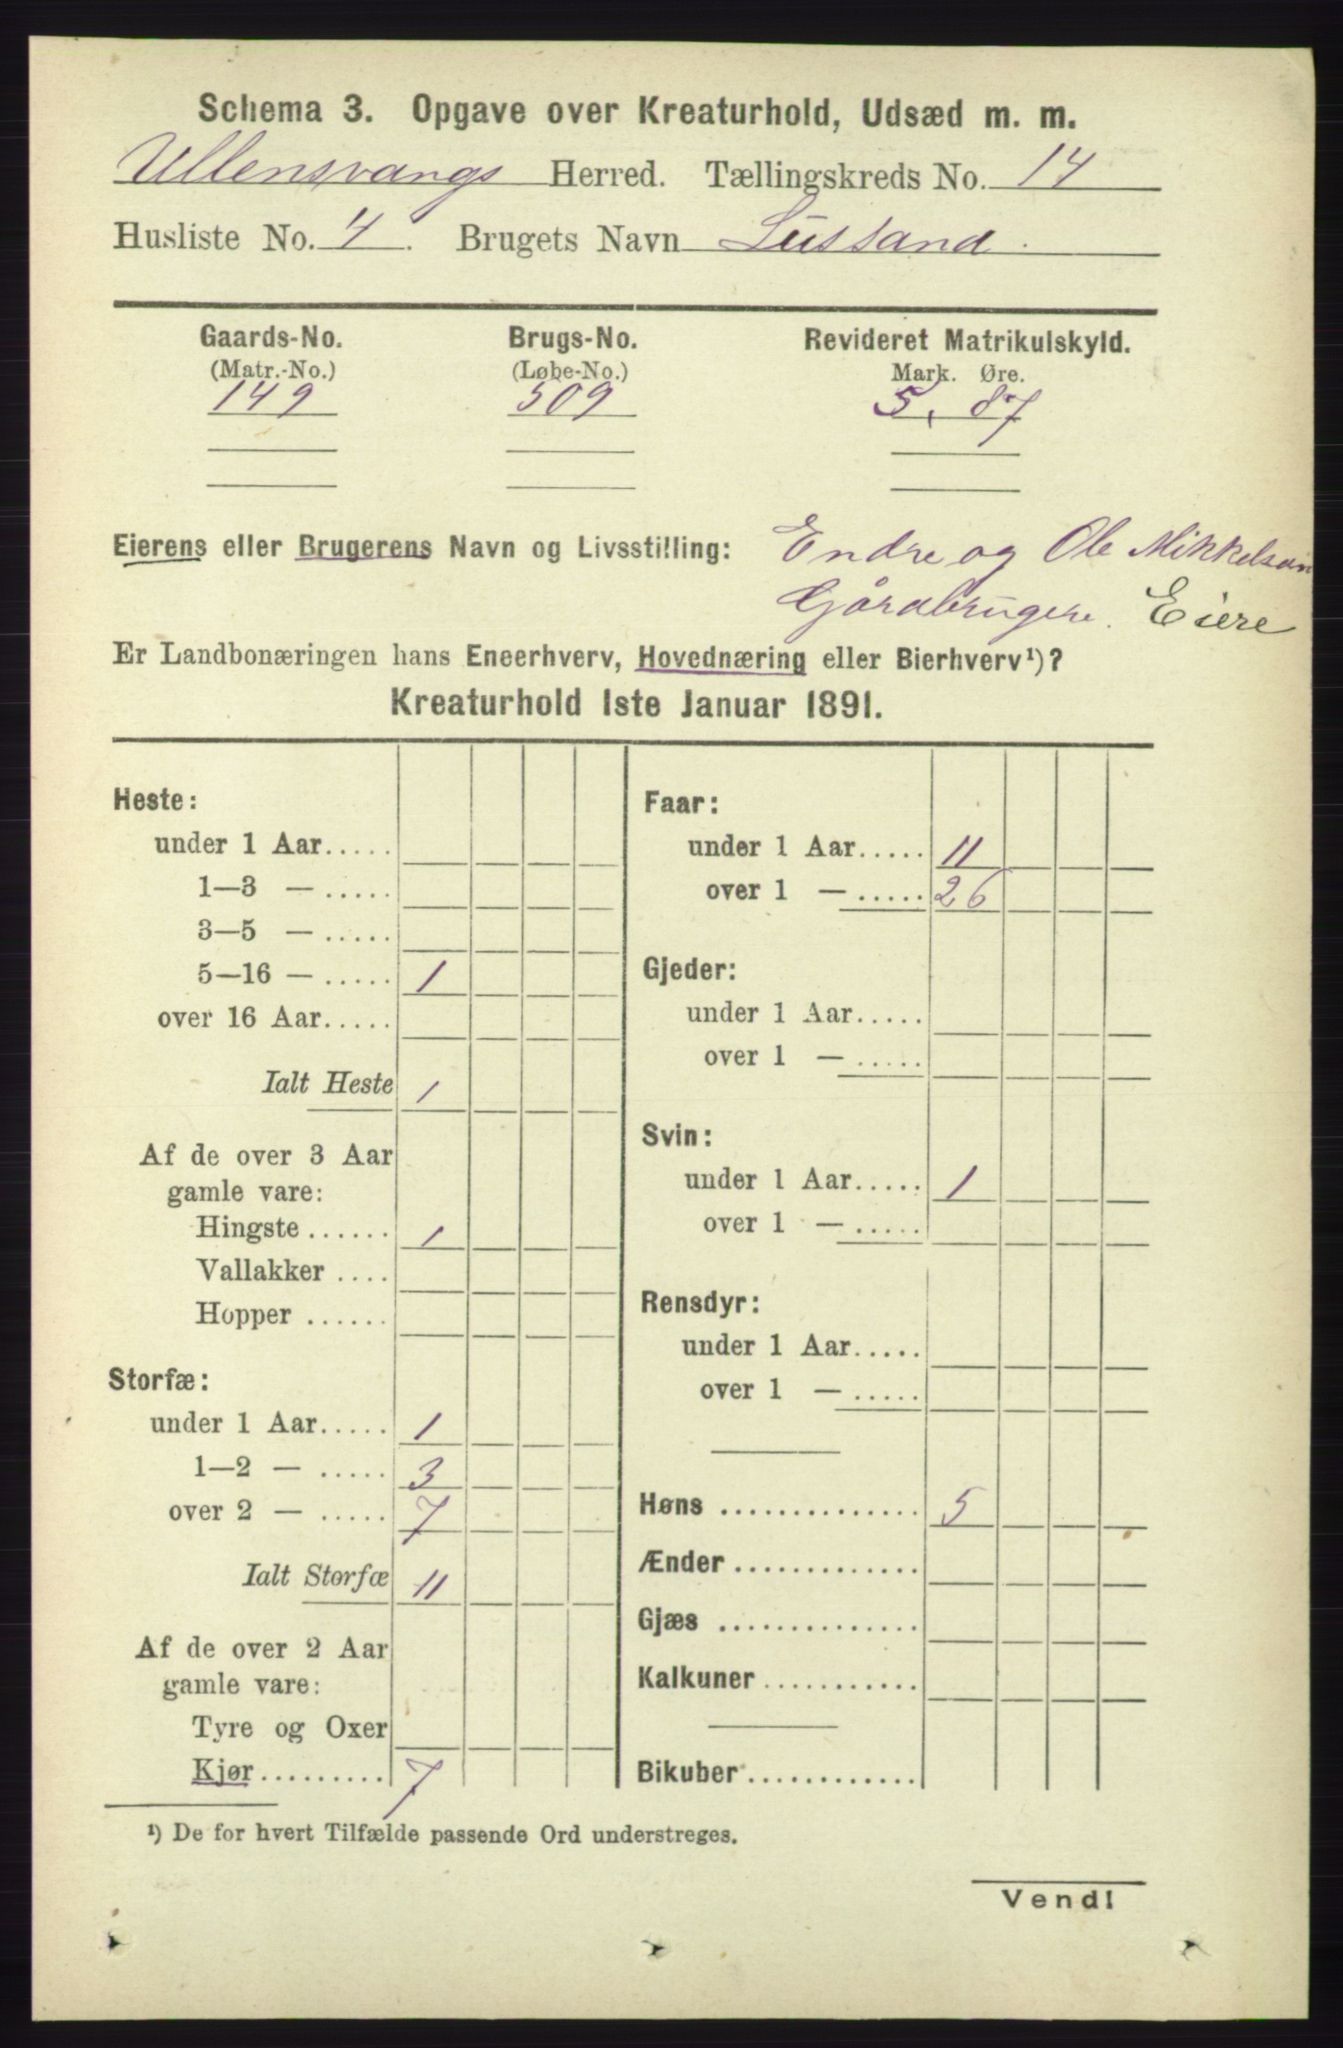 Schema 3. Opgave over Kreaturhold, Udsæd m. m.
Ullensvangs Herred. Tællingskreds No. 14
Husliste No. 4. Brugets Navn Lussand.
Gaards-No. Brugs-No. Revideret Matrikulskyld.
(Matr.-No.) (Løbe-No.) Mark. Øre.
149 509 5, 87
Eierens eller Brugerens Navn og Livsstilling: Endre og Ole Mikkelsøn
Gårdbrugere. Eiere
Er Landbonæringen hans Eneerhverv, Hovednæring eller Bierhverv¹)?
Kreaturhold 1ste Januar 1891.
Heste:
under 1 Aar.....
1—3 — .....
3—5 — .....
5—16 — ..... 1
over 16 Aar.....
Ialt Heste 1
Af de over 3 Aar
gamle vare:
Hingste ...... 1
Vallakker ....
Hopper ......
Storfæ:
under 1 Aar..... 1
1—2 — ..... 3
over 2 — ..... 7
Ialt Storfæ 11
Af de over 2 Aar
gamle vare:
Tyre og Oxer
Kjør......... 7
Faar:
under 1 Aar..... 11
over 1 — ..... 26
Gjeder:
under 1 Aar.....
over 1 — .....
Svin:
under 1 Aar..... 1
over 1 — .....
Rensdyr:
under 1 Aar.....
over 1 — .....
Høns .............. 5
Ænder .............
Gjæs ..............
Kalkuner ...........
Bikuber ............
¹) De for hvert Tilfælde passende Ord understreges.
Vend!